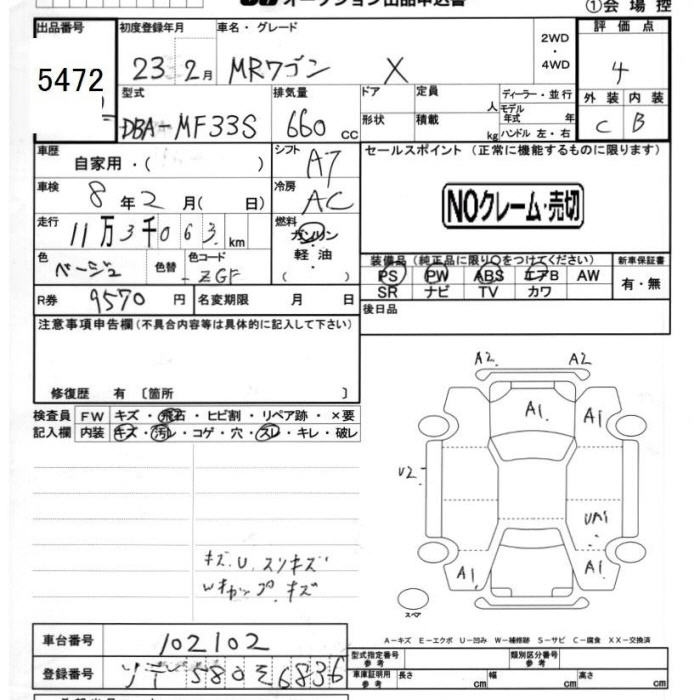 オークション出品申込書
①会場控
出品番号
5472
初度登録年月
23年2月
車名・グレード
MRワゴン X
2WD・4WD
評価点
4
外装 内装
C B
型式
DBA-MF33S
排気量
660 cc
ドア
形状
定員 人
積載 kg
ディーラー・並行
モデル年式 年
ハンドル 左・右
車歴
自家用・( )
シフト
A7
車検
8年2月( 日)
冷房
AC
走行
11万3千063 km
燃料
ガソリン
軽油
( )
色
ベージュ
色替
色コード
ZGF
R券
9570 円
名変期限 月 日
セールスポイント (正常に機能するものに限ります)
NOクレーム・売切
装備品(純正品に限り○をつけてください)
新車保証書
PS PW ABS エアB AW
SR ナビ TV カワ
有・無
後日品
注意事項申告欄(不具合内容等は具体的に記入して下さい)
修復歴 有 〔箇所 〕
検査員記入欄
FW キズ・飛石・ヒビ割・リペア跡・×要
内装 キズ・汚レ・コゲ・穴・スレ・キレ・破レ
キズ.U.スリキズ
Wキャップ.キズ
A2 A2
A1. A1
U2
A1. A1.
スペア
A−キズ E−エクボ U−凹み W−補修跡 S−サビ C−腐食 XX−交換済
車台番号
102102
登録番号
580 そ 6836
型式指定番号 参考
類別区分番号 参考
車庫証明用 参考
長さ cm
幅 cm
高さ cm